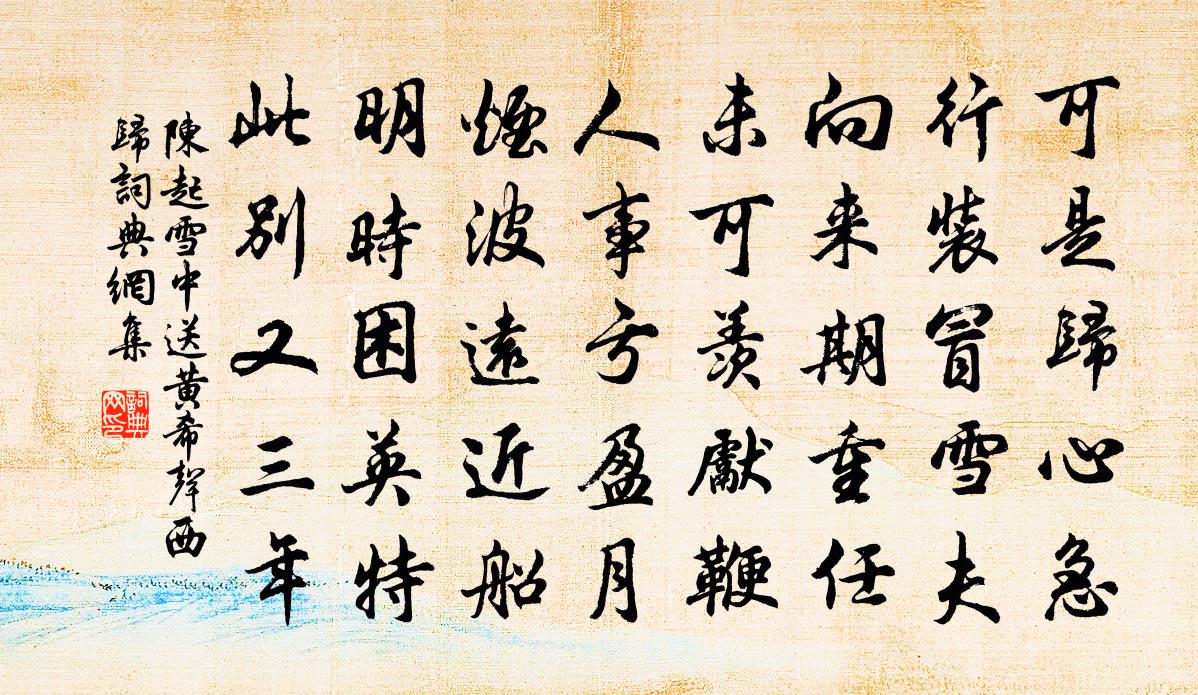 可是歸心急
行裝冒雪夫
向来期重任
未可羨獻鞭
人事亏盈月
煙波遠近船
明時困英特
此別又三年
陳起雪中送黄希聲西
歸詞典網集
詞典网印